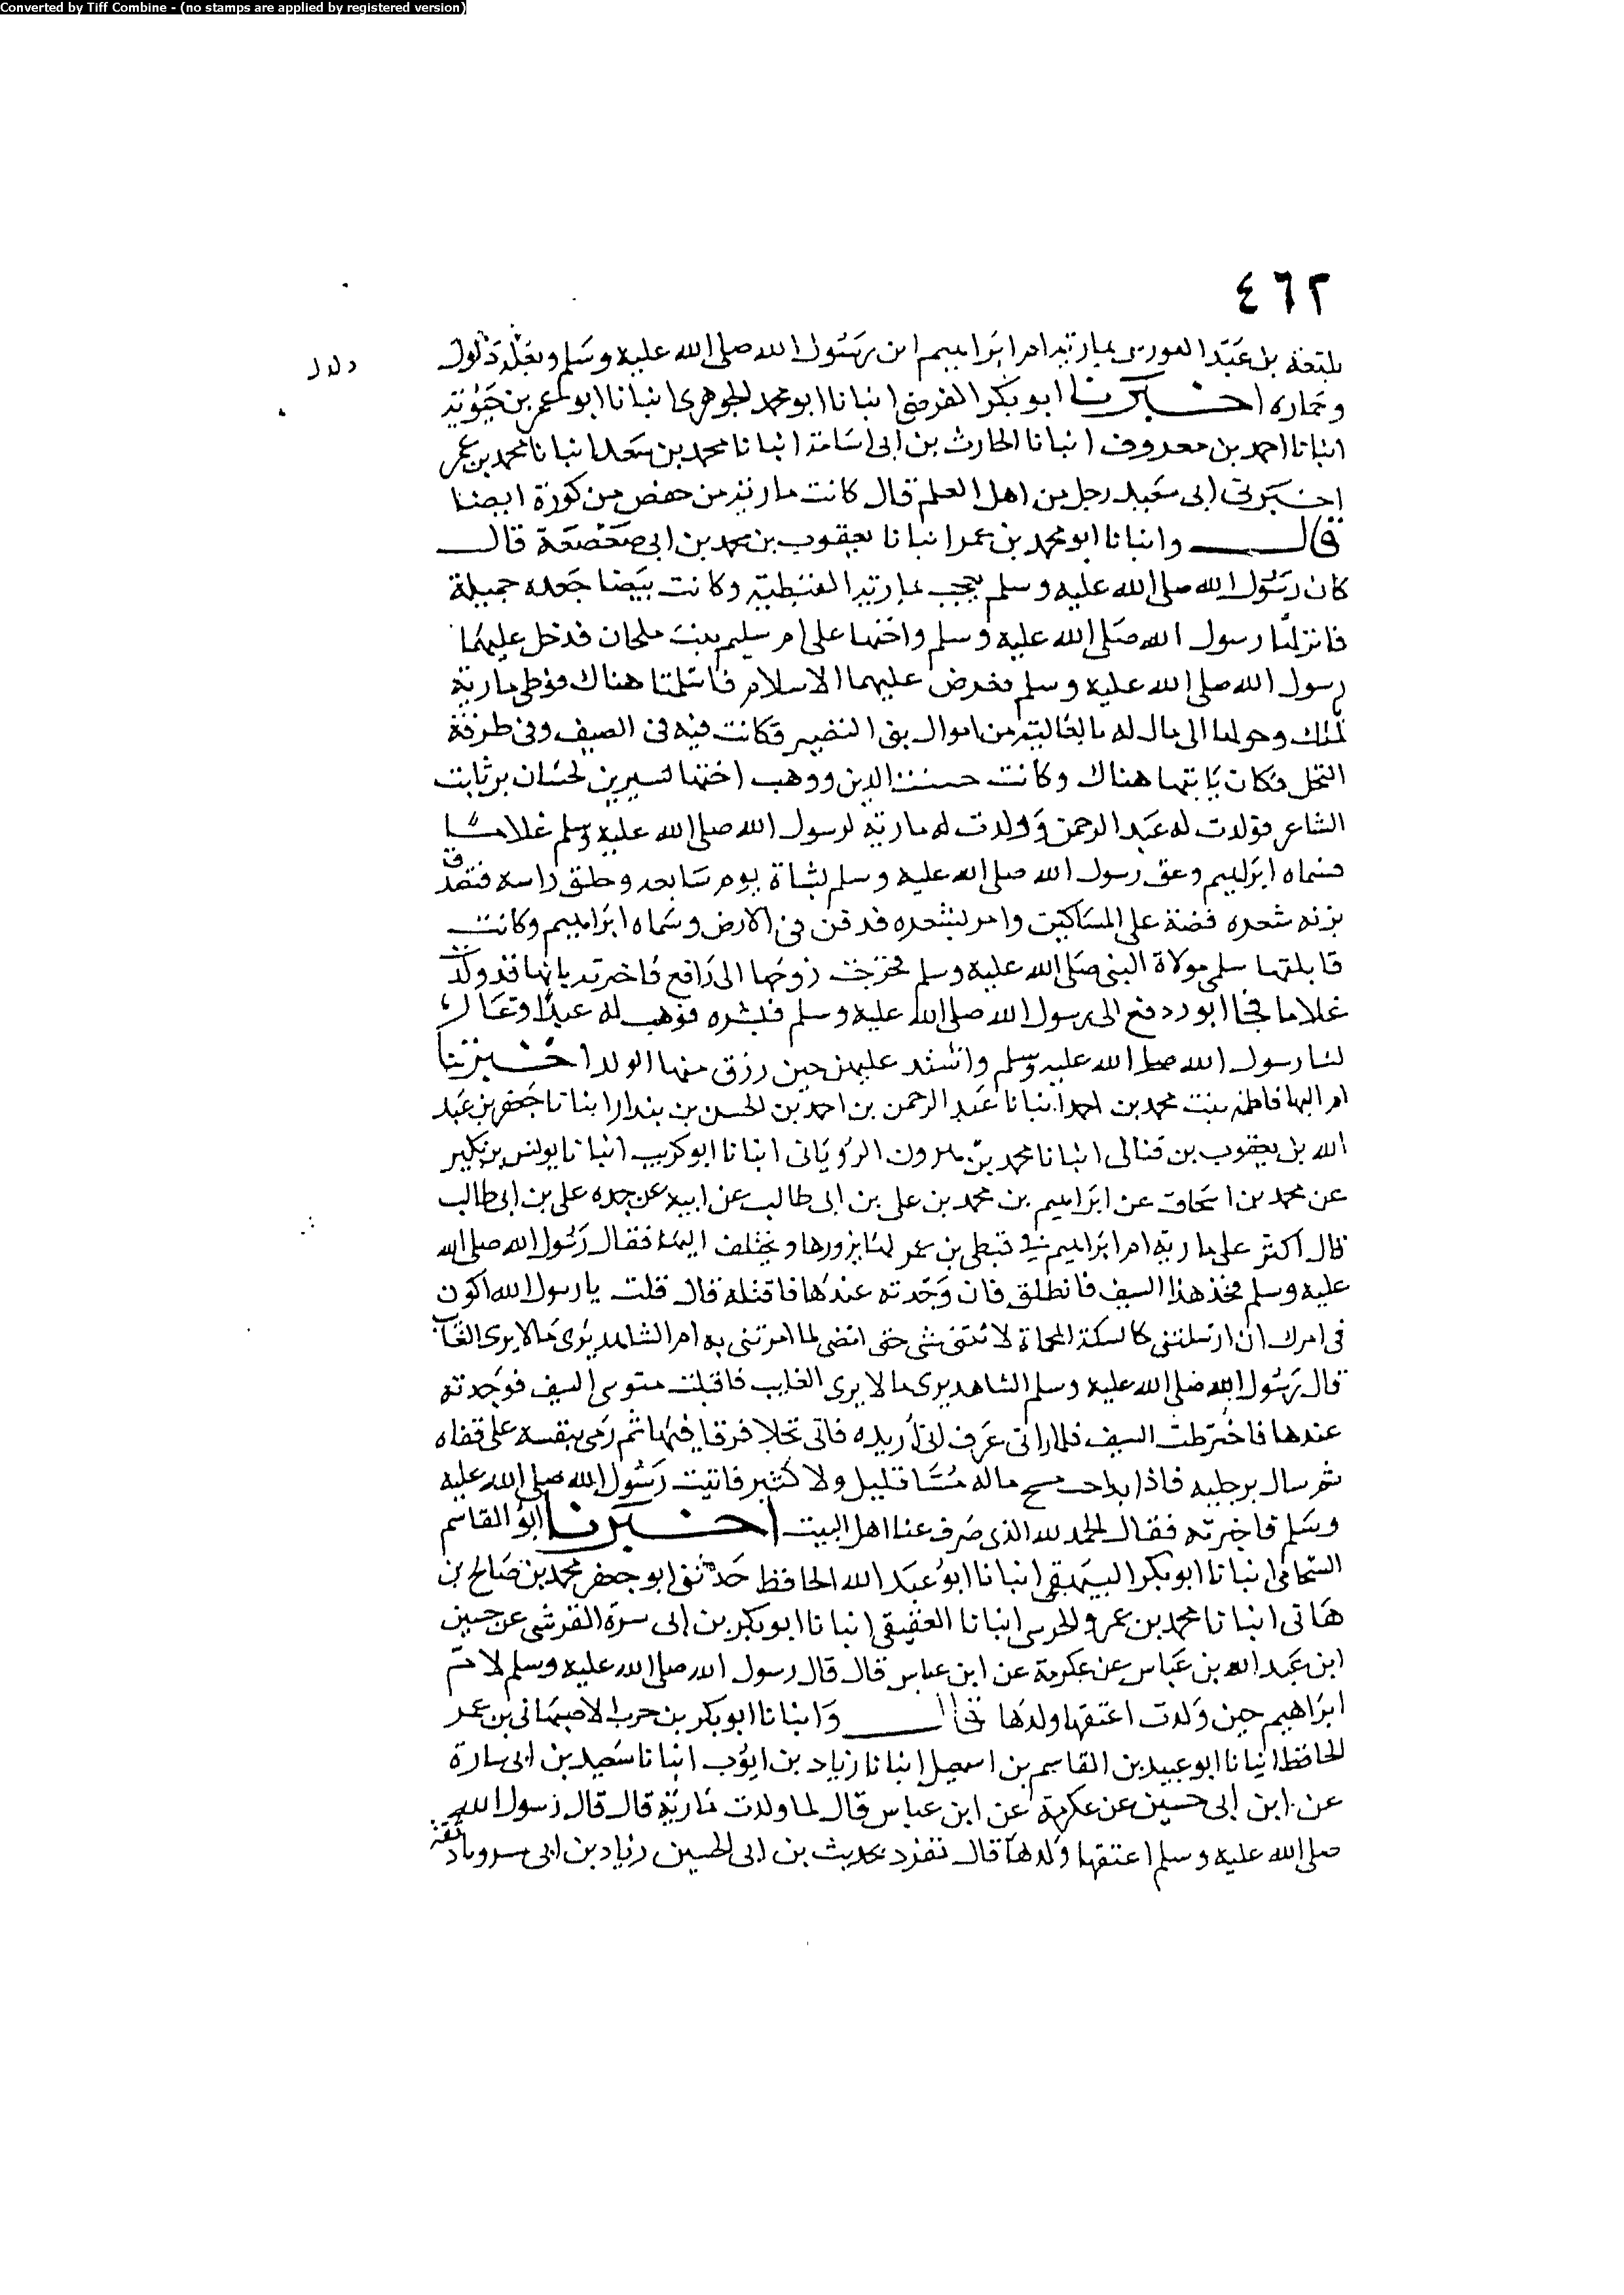 Converted by Tiff Combine - (no stamps are applied by registered version)
٤٦٢
بلتعة بن عبد العزى بمارية ام ابراهيم ابن رسول الله صلى الله عليه وسلم وبغلة دلول
دلدل
وحماره اخبرنا ابو بكر الفرضى انبانا ابو محمد الجوهرى انبانا ابو عمر بن حيوية
انبانا احمد بن معروف انبانا الحارث بن ابى اسامة انبانا محمد بن سعد انبانا محمد بن عمر
اخبرنى ابى سعيد رجل من اهل العلم قال كانت مارية من حفص من كورة ايضنا
قال وانبانا ابو محمد بن عمر انبانا يعقوب بن محمد بن ابى صعصعة قال
كان رسول الله صلى الله عليه وسلم يعجب بمارية القبطية وكانت بيضا جعدة جميلة
فانزلها رسول الله صلى الله عليه وسلم واختها على ام سليم بنت ملحان فدخل عليهما
رسول الله صلى الله عليه وسلم فعرض عليهما الاسلام فاسلمتا هناك فوطى مارية
بملك وحولها الى مال له بالعالية من اموال بنى النضير فكانت فيه فى الصيف وفى طرفة
النخل فكان ياتيها هناك وكانت حسنت الدين ووهب اختها لسيرين لحسان بن ثابت
الشاعر فولدت له عبد الرحمن وولدت له مارية لرسول الله صلى الله عليه وسلم غلاما
فسماه ابراهيم وعق رسول الله صلى الله عليه وسلم بشاة يوم سابعه وحلق راسه فتصدق
بزنه شعره فضة على المساكين وامر بشعره فدفن فى الارض وسماه ابراهيم وكانت
قابلتها سلمى مولاة النبى صلى الله عليه وسلم فخرجت زوجها الى رافع فاخبرته بانها قد ولدت
غلاما فجا ابو ردفع الى رسول الله صلى الله عليه وسلم فبشره فوهب له عبدا وغار
نسا رسول الله صلى الله عليه وسلم واشتد عليهن حين رزق منها الولد اخبرتنا
ام البها فاطمة بنت محمد بن احمد انبانا عبد الرحمن بن احمد بن الحسن بن بندار ابنانا جعفر بن عبد
الله بن يعقوب بن فنالى انبانا محمد بن هرون الرؤيانى انبانا ابو كريب انبانا يونس بن بكير
عن محمد بن اسحاق عن ابراهيم بن محمد بن على بن ابى طالب عن ابيه عن جده على بن ابى طالب
قال اكثر على مارية ام ابراهيم فى قبطى بن عم لها يزورها ويختلف اليها فقال رسول الله صلى الله
عليه وسلم فخذ هذا السيف فانطلق فان وجدته عندها فاقتله قال قلت يا رسول الله اكون
فى امرك ان ارسلتنى كالسكة المحماة لا يثنى شى حتى امضى لما امرتنى به ام الشاهد يرى ما لا يرى الغايب
قال رسول الله صلى الله عليه وسلم الشاهد يرى ما لا يرى الغايب فاقبلت متوسى السيف فوجدته
عندها فاخترطت السيف فلما رانى عرف انى اريده فاتى نخلا فرقا فيها ثم رمى بنفسه على قفاه
ثم سال برجليه فاذا به احب مسح ماله مما قليل ولا كثير فاتيت رسول الله صلى الله عليه
وسلم فاخبرته فقال الحمد لله الذى صرف عنا اهل البيت اخبرنا ابو القاسم
الشحامى انبانا ابو بكر البيهقى انبانا ابو عبد الله الحافظ حدثنى ابو جعفر محمد بن صالح بن
هانى انبانا محمد بن عمرو الحرسى انبانا العقيقى انبانا ابو بكر بن ابى سبرة القرشى عن حسين
ابن عبد الله بن عباس عن عكرمة عن ابن عباس قال قال رسول الله صلى الله عليه وسلم لام
ابراهيم حين ولدت اعتقها ولدها قال وانبانا ابو بكر بن حرب الاصبهانى بن عمر
الحافظ انبانا ابو عبيد بن القاسم بن اسمعيل انبانا زياد بن ايوب انبانا سعيد بن ابى سارة
عن ابن ابى حسين عن عكرمة عن ابن عباس قال لما ولدت مارية قال قال رسول الله
صلى الله عليه وسلم اعتقها ولدها قال تفرد بحديث بن ابى الحسين زياد بن ابى سرو ثقة